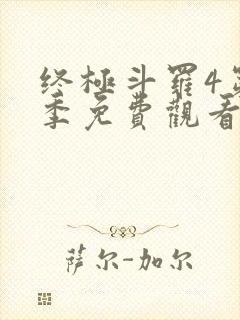 终極斗羅4
季免費觀看
萨尔-加尔